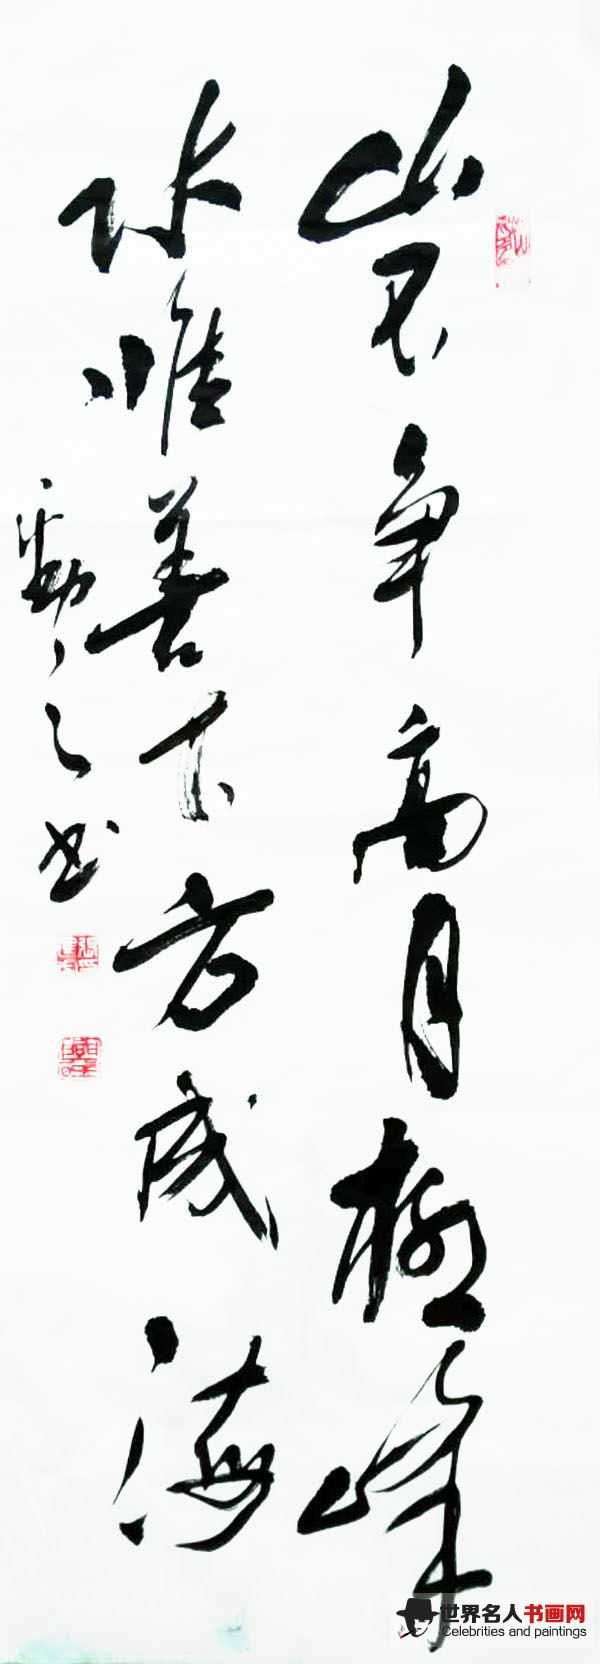 山不争高自極峰
水惟善下方成海
之书
世界名人书画网
Celebrities and paintings